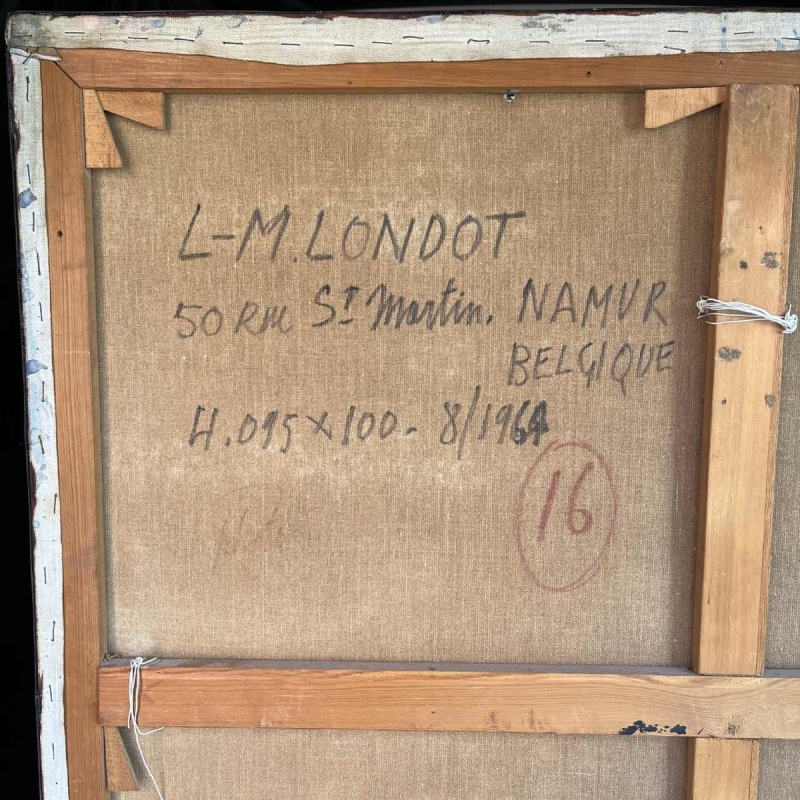 L-M. LONDOT
50 Rue St Martin. NAMUR
BELGIQUE
4.095 x 100. 8/1964
16